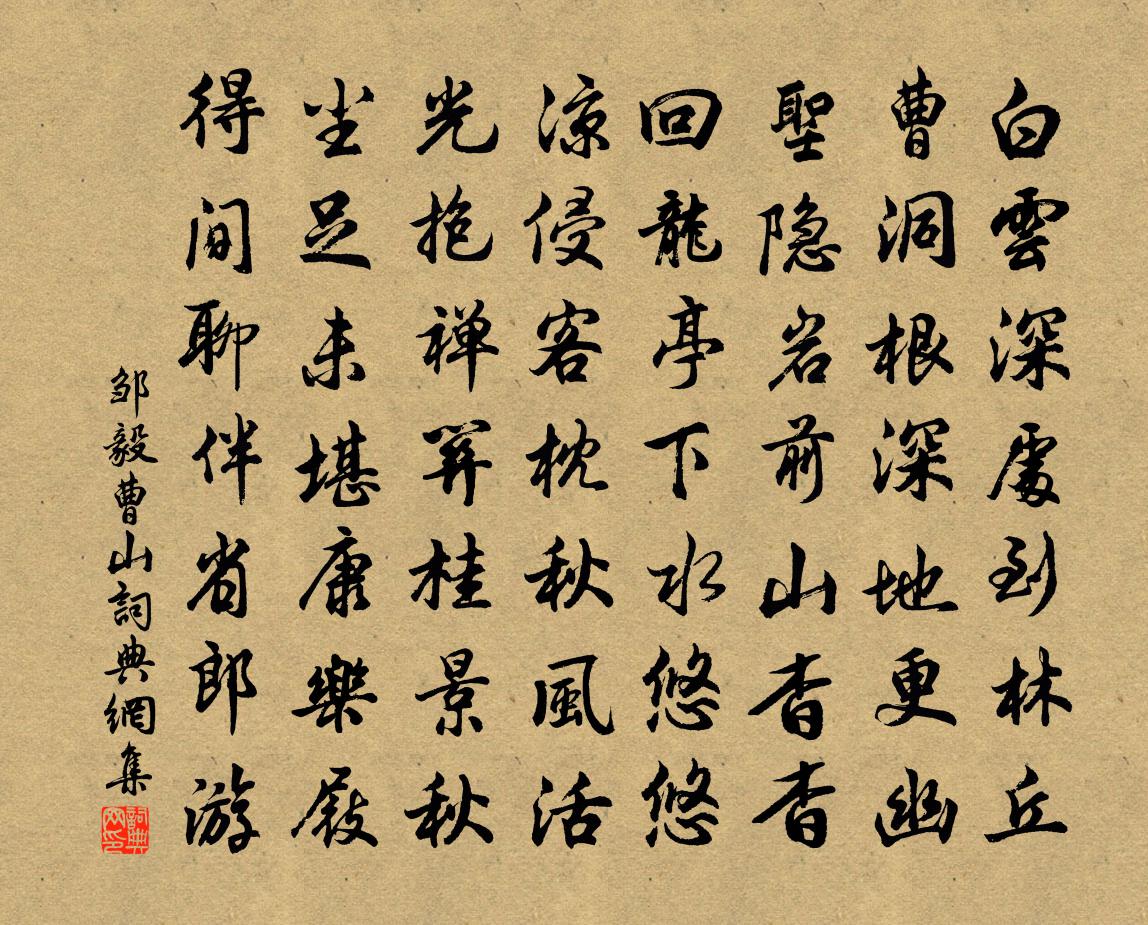 白雲深處到林丘
曹洞根深地更幽
聖隐岩前山杳杳
回龍亭下水悠悠
涼侵客枕秋風活
光抱禅笄桂景秋
尘足未堪康樂屐
得间聊伴省郎游
邹毅曹山詞典網集
詞典网印